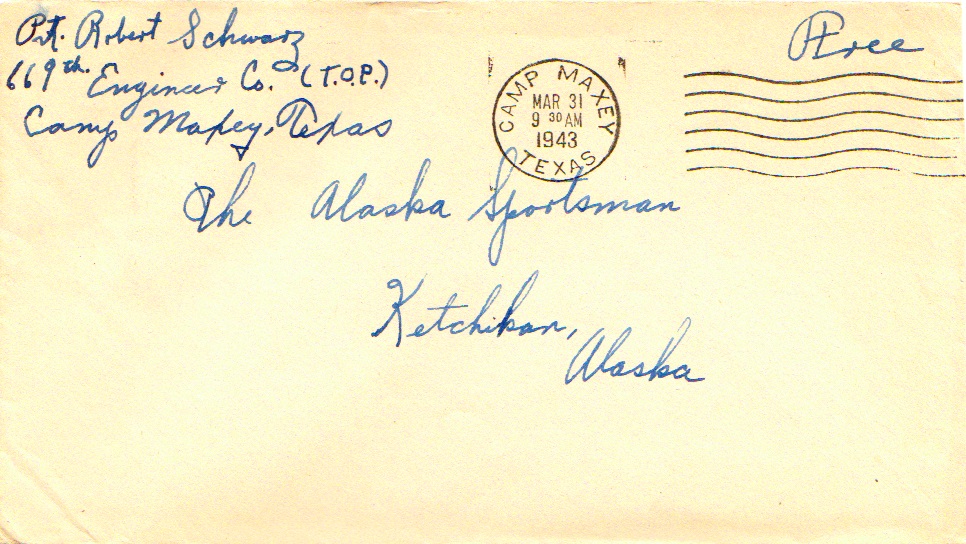 Pvt. Robert Schwarz
669th. Engineer Co. (T.O.P.)
Camp Maxey, Texas
Free
CAMP MAXEY
MAR 31
9 30 AM
1943
TEXAS
The Alaska Sportsman
Ketchikan,
Alaska